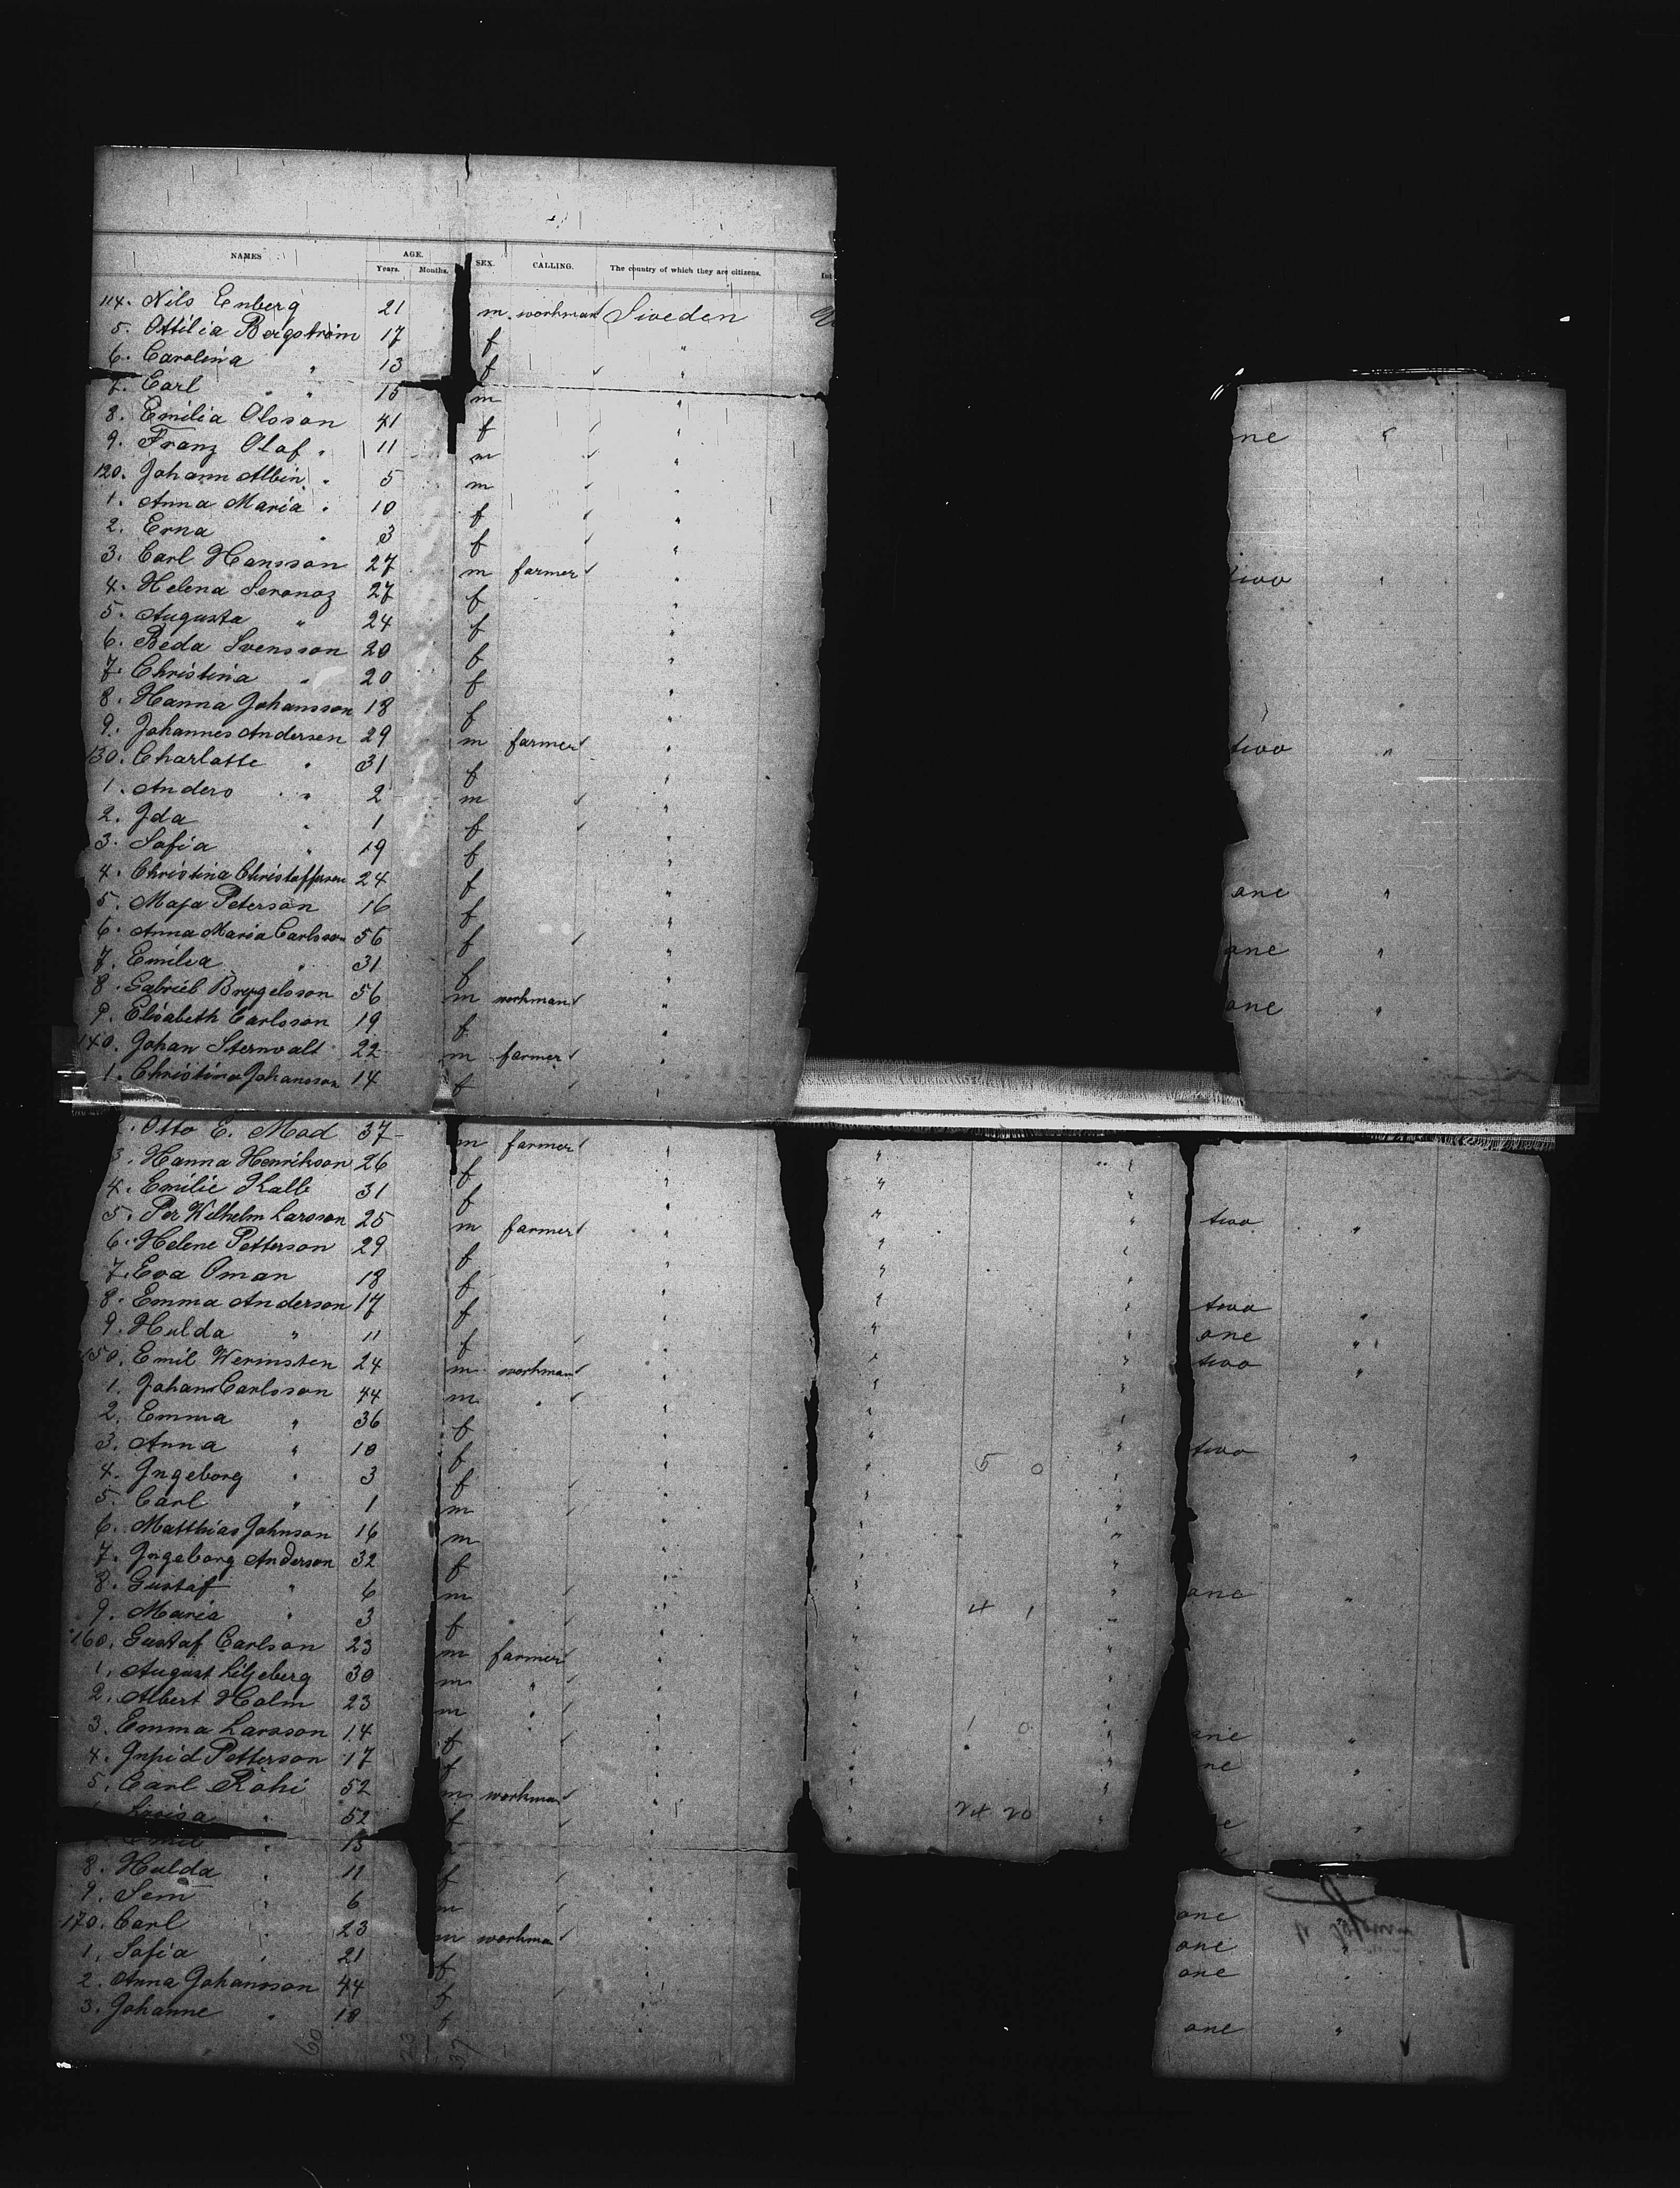 NAMES AGE. SEX. CALLING. The country of which they are citizens.
Years. Months.
114. Nils Enberg 21 m workman Sweden
5. Ottilia Bergström 17 f "
6. Carolina " 13 f "
7. Carl " 15 m "
8. Emilia Olsson 41 f "
9. Franz Olaf " 11 m " one "
120. Johann Albin " 5 m "
1. Anna Maria " 10 f "
2. Erna " 3 f "
3. Carl Hansson 27 m farmer "
4. Helena 27 f " two "
5. Augusta " 24 f "
6. Beda Svensson 20 f "
7. Christina " 20 f "
8. Hanna Johansson 18 f "
9. Johannes Andersen 29 m farmer "
130. Charlotte " 31 f " two "
1. Anders " 2 m "
2. Ida " 1 f "
3. Sofia " 19 f "
4. Christina 24 f "
5. Maja Peterson 16 f " one "
6. Anna Maria Carlsson 56 f "
7. Emilia " 31 f " one "
8. Gabriel 56 m workman "
9. Elisabeth Carlsson 19 f " one "
140. Johan Sternvalt 22 m farmer "
1. Christina Johansson 14 f "
2. Otto E. Mod 37 m farmer " "
3. Hanna Henrikson 26 f " "
4. Emilie Kalb 31 f " "
5. Per Wilhelm Larsson 25 m farmer " " two "
6. Helene Petterson 29 f " "
7. Eva Oman 18 f " "
8. Emma Anderson 17 f " " two "
9. Hulda " 11 f " " one "
150. Emil Werinsten 24 m workman " " two "
1. Johan Carlsson 44 m " " "
2. Emma " 36 f " "
3. Anna " 10 f " " two "
4. Ingeborg " 3 f " " 5 0
5. Carl " 1 m " "
6. Matthias Johnson 16 m " "
7. Ingeborg Anderson 32 f " "
8. Gustaf " 6 m " " one "
9. Maria " 3 f " " 4 1
160. Gustaf Carlson 23 m farmer " "
1. August Liljeberg 30 m " " "
2. Albert Holm 23 m " " "
3. Emma Larsson 14 f " " 1 0 one "
4. Petterson 17 f " "
5. Carl Röhi 52 m workman " "
Louisa " 52 f " 24 20
Emil " 13 "
8. Hulda " 11 f "
9. Sem " 6 m "
170. Carl " 23 m workman " one
1. Sofia " 21 f " one "
2. Anna Johansson 44 f " one "
3. Johanne " 18 f one "
60 23 37